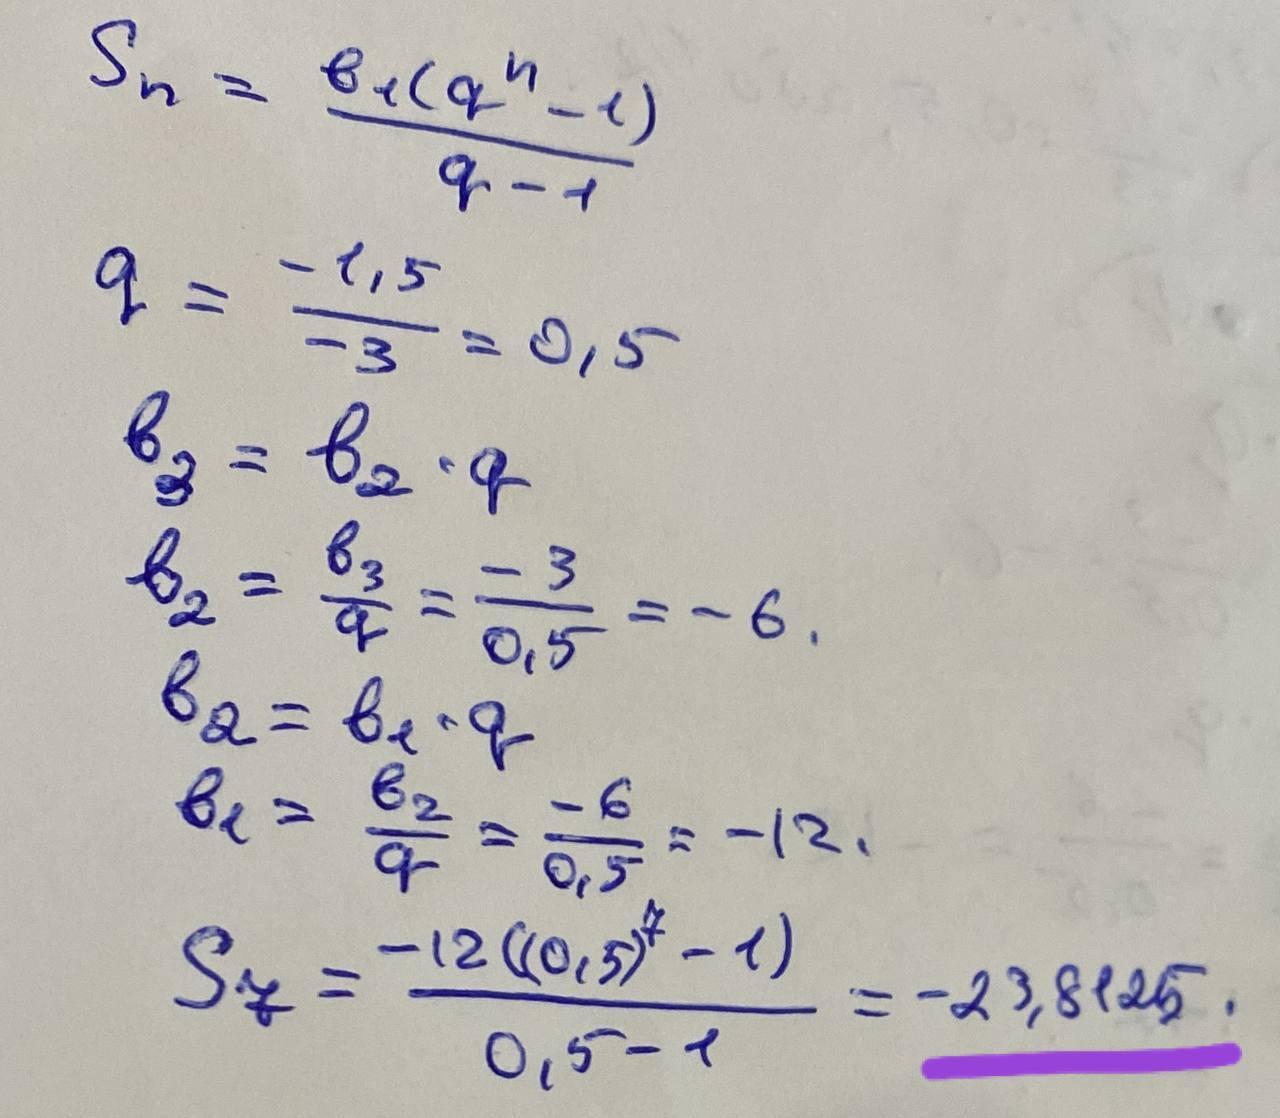 Sₙ = в₁(qⁿ - 1) / q - 1
q = -1,5 / -3 = 0,5
в₃ = в₂ · q
в₂ = в₃ / q = -3 / 0,5 = -6.
в₂ = в₁ · q
в₁ = в₂ / q = -6 / 0,5 = -12.
S₇ = -12((0,5)⁷ - 1) / 0,5 - 1 = -23,8125.